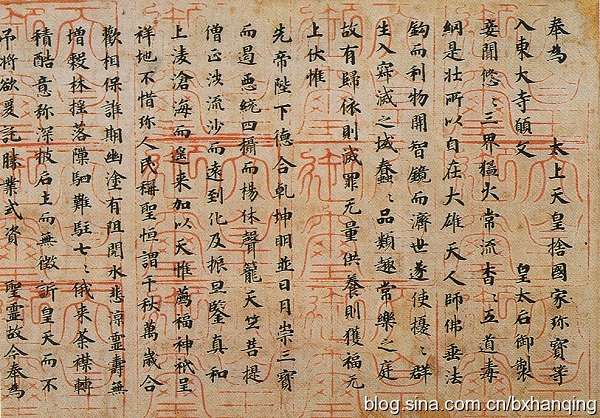 奉為　太上天皇捨國家珎寶等
入東大寺願文　皇太后御製
妾聞悠々三界猛火常流杳々五道毒
網是壯所以自在大雄天人師佛垂法
鈎而利物開智鏡而濟世遂使擾々群
生入寂滅之域蠢々品類趣常樂之庭
故有歸依則滅罪无量供養則獲福无
上伏惟
先帝陛下德合乾坤明並日月崇三寶
而遏惡統四攝而揚休聲籠天竺菩提
僧正涉流沙而遠到化及振旦鑒真和
上淩滄海而遙來加以天惟薦福神祇呈
祥地不惜珎人民稱聖恒謂千秋萬歲合
歡相保誰期幽塗有阻閱水悲涼靈壽無
增穀林搖落隟駟難駐七々俄來荼襟轉
積酷意弥深披后土而無徵訴皇天而不
弔將欲爰託勝業式資　聖靈故今奉為
blog.sina.com.cn/bxhanqing